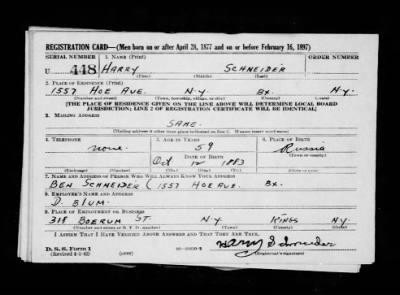 REGISTRATION CARD—(Men born on or after April 28, 1877 and on or before February 16, 1897)
SERIAL NUMBER 1. NAME (Print) ORDER NUMBER
U 448 HARRY SCHNEIDER
(First) (Middle) (Last)
2. PLACE OF RESIDENCE (Print)
1557 HOE AVE. N.Y. BX. N.Y.
(Number and street) (Town, township, village, or city) (County) (State)
[THE PLACE OF RESIDENCE GIVEN ON THE LINE ABOVE WILL DETERMINE LOCAL BOARD
JURISDICTION; LINE 2 OF REGISTRATION CERTIFICATE WILL BE IDENTICAL]
3. MAILING ADDRESS
SAME.
[Mailing address if other than place indicated on line 2. If same insert word same]
4. TELEPHONE 5. AGE IN YEARS 6. PLACE OF BIRTH
none. 59 Russia
DATE OF BIRTH (Town or county)
Oct 12 1883
(Exchange) (Number) (Mo.) (Day) (Yr.) (State or country)
7. NAME AND ADDRESS OF PERSON WHO WILL ALWAYS KNOW YOUR ADDRESS
BEN SCHNEIDER ( 1557 HOE AVE. BX.
8. EMPLOYER'S NAME AND ADDRESS
D. BLUM.
9. PLACE OF EMPLOYMENT OR BUSINESS
318 BOERUM ST. N.Y. KINGS N.Y.
(Number and street or R. F. D. number) (Town) (County) (State)
I AFFIRM THAT I HAVE VERIFIED ABOVE ANSWERS AND THAT THEY ARE TRUE.
D. S. S. Form 1 Harry Schneider
(Revised 4-1-42) (over) (Registrant's signature)